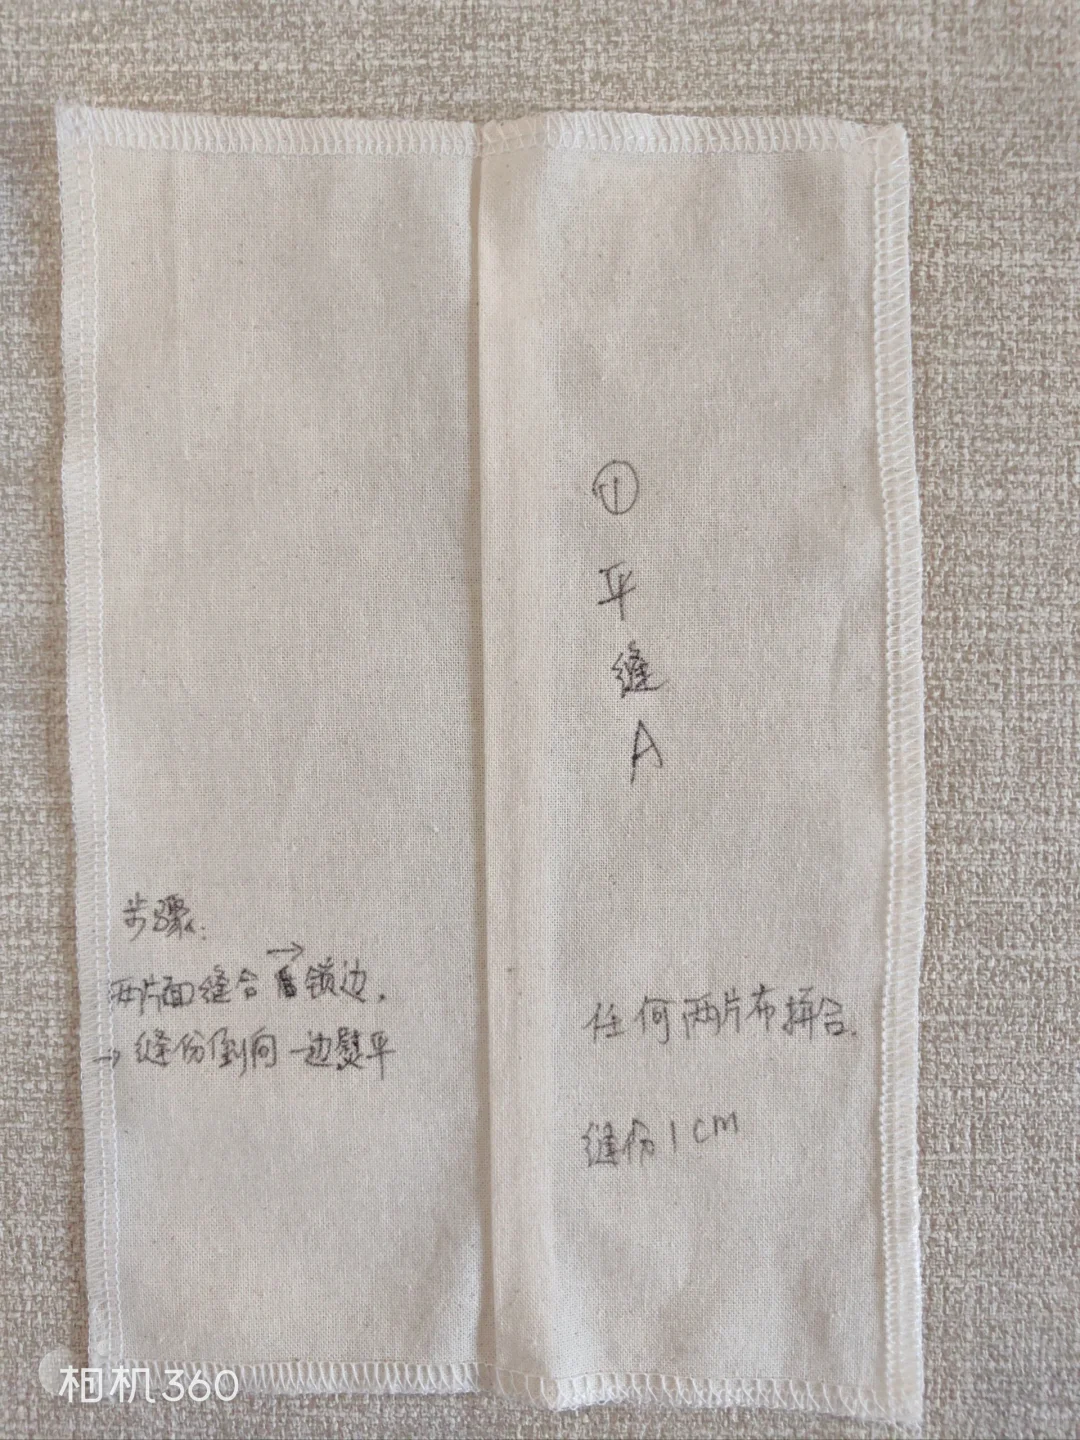 ①
平
缝
A
步骤:
两片面缝合→锁边,
→缝份倒向一边熨平
任何两片布拼合.
缝份1cm
相机360